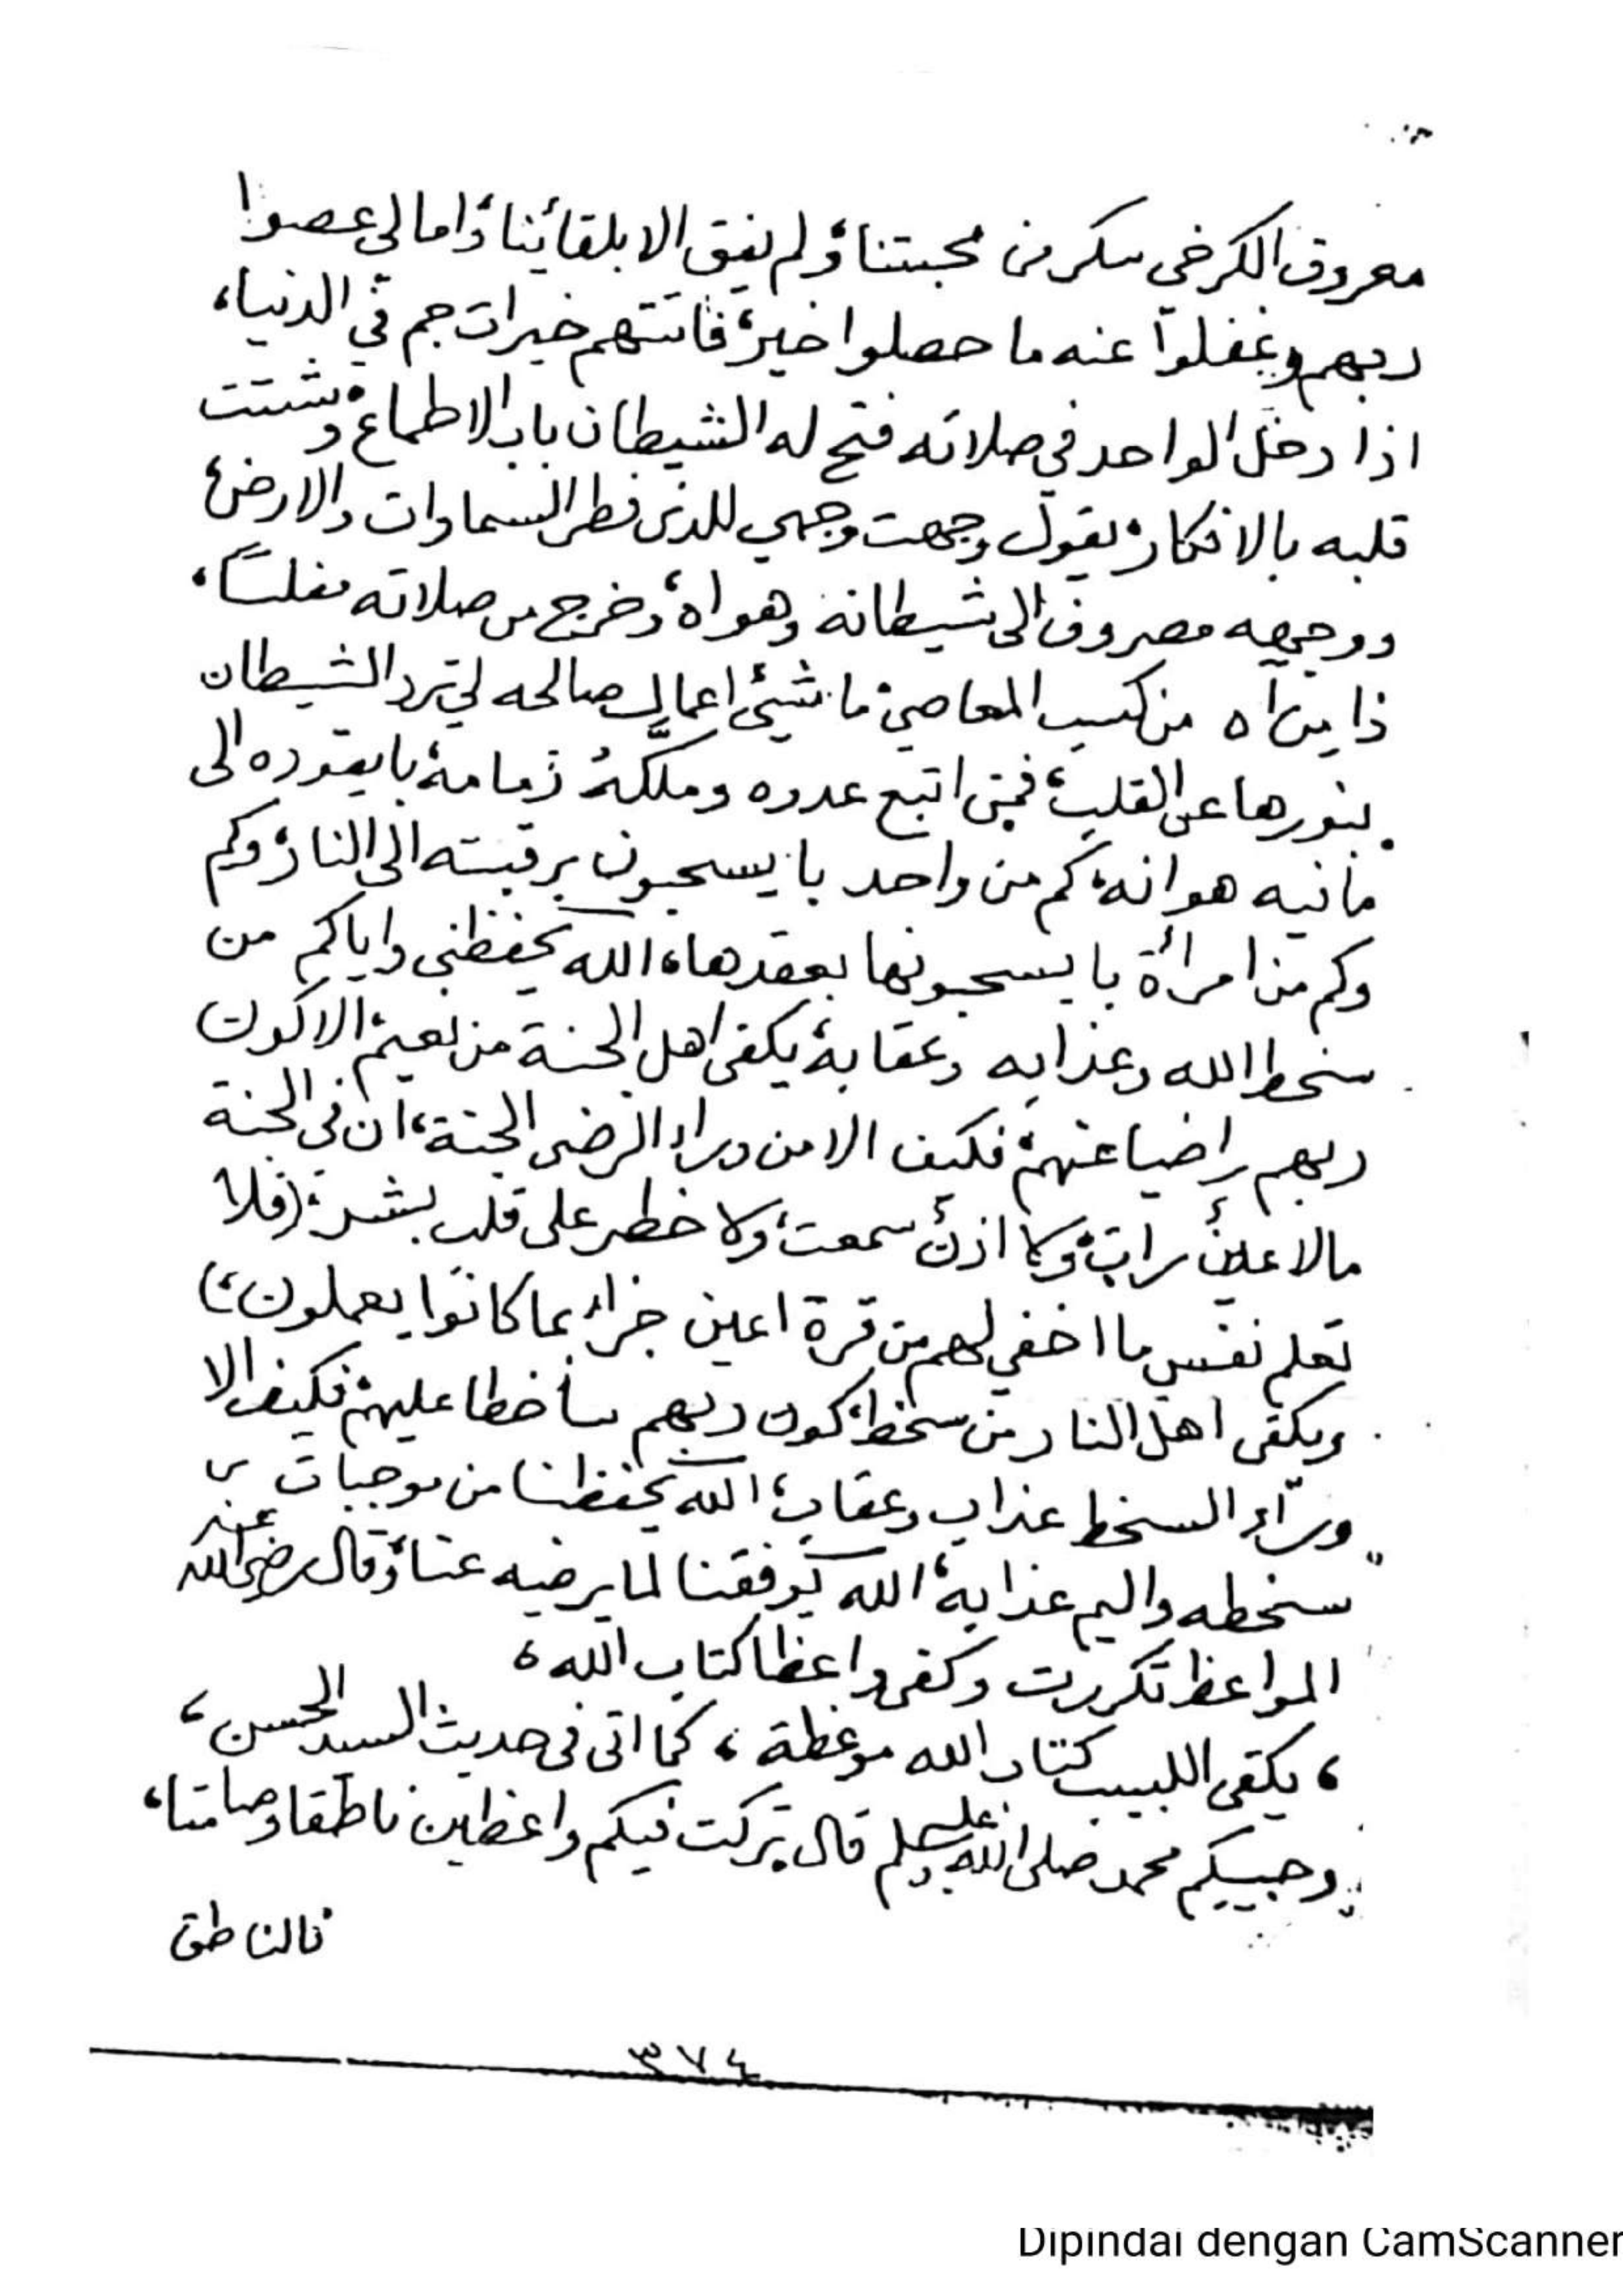 معروف الكرخي سكر من محبتنا، ولم يفق الا بلقائنا، واما لي عصوا
ربهم وغفلوا عنه ما حصلوا خير، فاتتهم خيرات جم في الدنيا،
اذا دخل الواحد في صلاته فتح له الشيطان باب الاطماع، وشتت
قلبه بالافكار، يقول وجهت وجهي للذي فطر السماوات والارض،
ووجهه مصروف الى شيطانه وهواه، وخرج من صلاته مفلسًا،
ذا من كسب المعاصي، ما شيئ اعمال صالحه لي ترد الشيطان
بنورها عن القلب، فمن اتبع عدوه وملكه زمامه، با يقوده الى
ما فيه هوانه، كم من واحد با يسحبون برقبته الى النار، وكم
وكم من امرأة با يسحبونها بعقدها، الله يحفظني واياكم من
سخط الله وعذابه وعقابه، يكفى اهل الجنة من نعيم، الا كون
ربهم راضيا عنهم، فكيف الا من وراء الرضى الجنة، ان فى الجنة
مالا عينٌ رات، ولا اذنٌ سمعت، ولا خطر على قلب بشر، (فلا
تعلم نفس ما اخفي لهم من قرة اعين جزاء بما كانوا يعملون،)
ويكفى اهل النار من سخط، كون ربهم ساخطا عليهم، فكيف الا
وراء السخط عذاب وعقاب، الله يحفظنا من موجبات
سخطه واليم عذابه، الله يوفقنا لما يرضيه عنا، وقال رضي الله عنه
المواعظ تكررت وكفى واعظا كتاب الله،
، يكفى اللبيب كتاب الله موعظة ، كما اتى فى حديث السيد الحسن ،
وحبيبكم محمد صلى الله عليه وسلم قال تركت فيكم واعظين ناطقا وصامتا،
فالناطق
٣٧٤
Dipindai dengan CamScanner